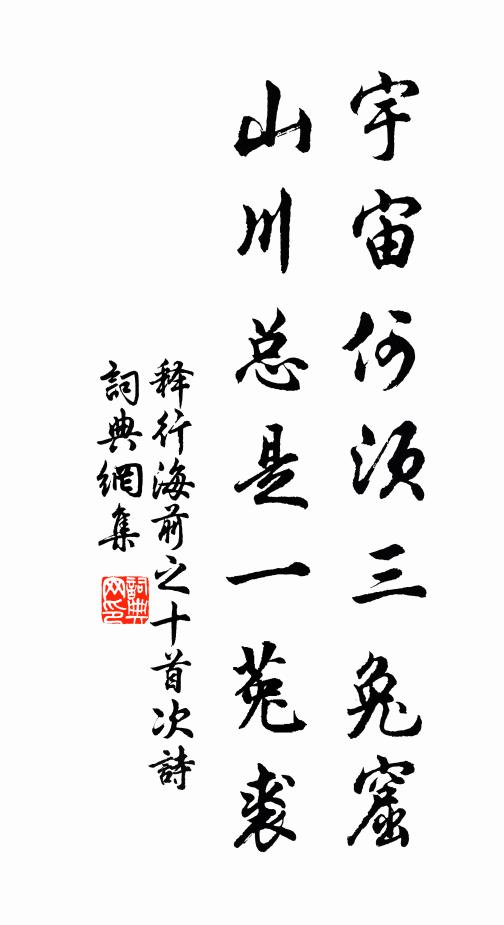 宇宙何须三兔窟
山川总是一菟裘
释行海前之十首次詩
詞典網集
詞典网印